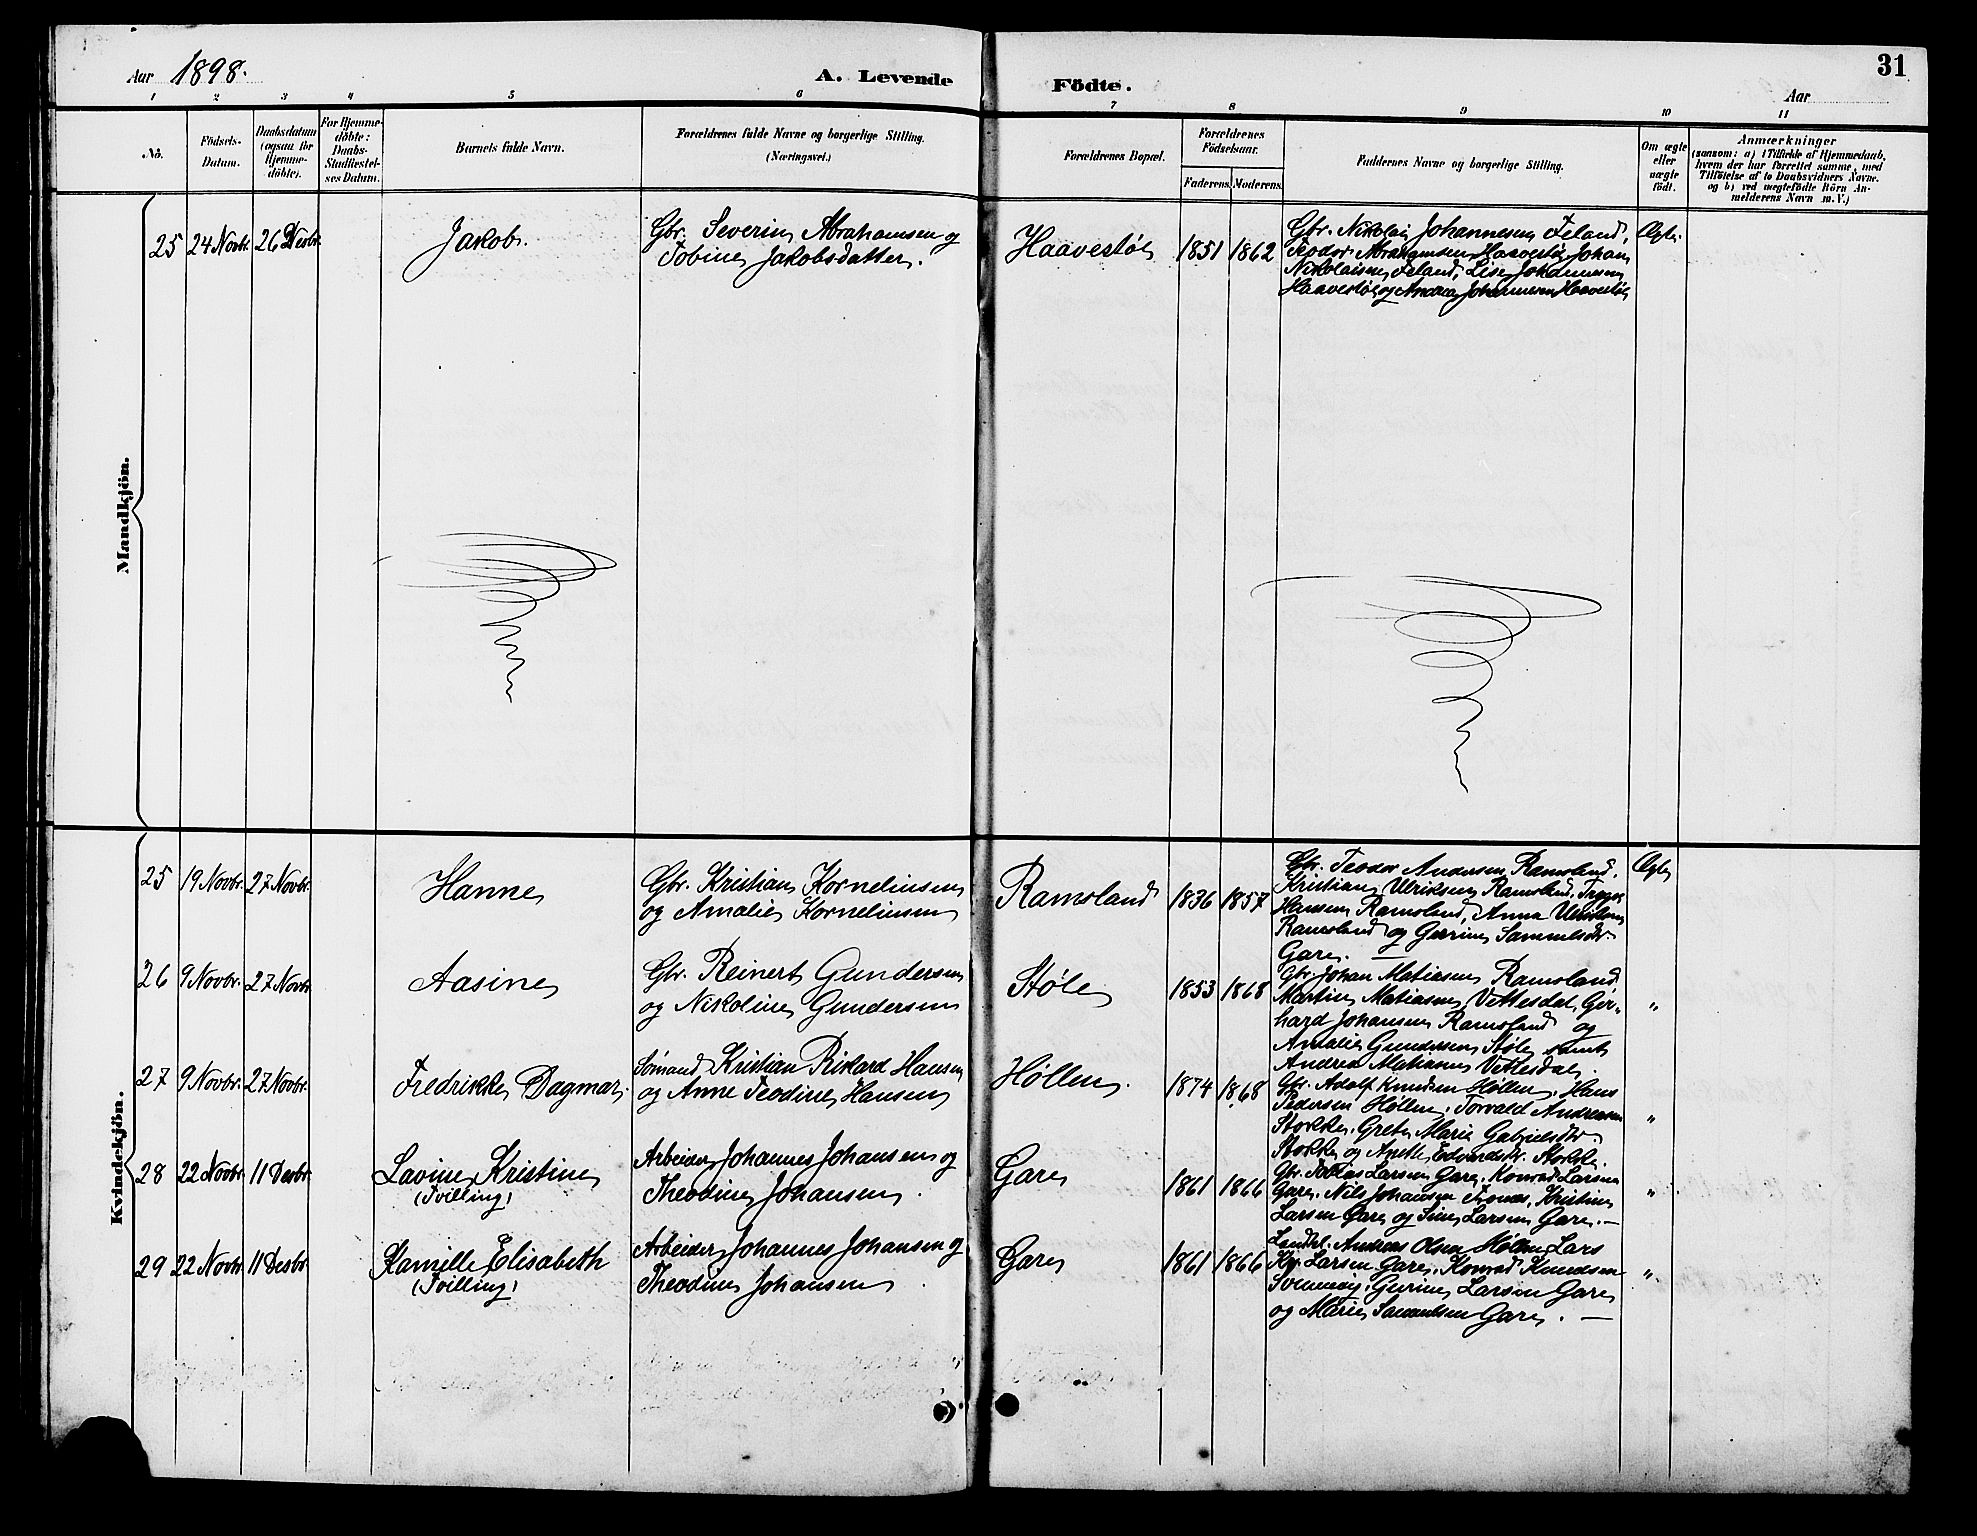 Aar 1898.
A. Levende
Födte.
31
Aar
1 2 3 4 5 6 7 8 9 10 11
No.
Födsels-
Datum.
Daabsdatum
(ogsaa for
Hjemme-
döbte).
For Hjemme-
döbte:
Daabs-
Stadfæstel-
ses Datum.
Barnets fulde Navn.
Forældrenes fulde Navne og borgerlige Stilling.
(Næringsvei.)
Forældrenes Bopæl.
Forældrenes
Födselsaar.
Faderens. Moderens.
Faddernes Navne og borgerlige Stilling.
Om ægte
eller
uægte
födt.
Anmærkninger
(saasom: a) i Tilfælde af Hjemmedaab,
hvem der har forrettet samme, med
Tilföielse af to Daabsvidners Navne,
og b) ved uægtefödte Börn An-
melderens Navn m.V.)
Mandkjön.
25 24 Novbr. 26 Desbr. Jakob.
Gbr. Severin Abrahamsen og
Tobine Jakobsdatter.
Haavestøl 1851 1862
Gbr. Nikolai Johannesen Feland,
Teodor Abrahamsen Haavestøl, Johan
Nikolaisen Feland, Lise Johannesen
Haavestøl og Andrea Johannesen Haavestøl
Ægte.
Kvindekjön.
25 19 Novbr. 27 Novbr. Hanne
Gbr. Kristian Kornelinsen
og Amalie Kornelinsen
Ramsland 1836 1857
Gbr. Teodor Andersen Ramsland,
Kristian Ulriksen Ramsland, Trygve
Hansen Ramsland, Anna Ulriksen
Ramsland og Gurine Samuelsdtr.
Gare. —
Ægte
26 9 Novbr. 27 Novbr. Aasine
Gbr. Reinert Gundersen
og Nikoline Gundersen
Støle 1853 1868
Gbr. Johan Matiasen Ramsland,
Martin Matiasen Vittesdal, Ger-
hard Johansen Ramsland og
Amalie Gundersen Støle samt
Andrea Matiasen Vittesdal.
"
27 9 Novbr. 27 Novbr. Fredrikke Dagmar.
Sømand Kristian Rikard Hansen
og Anne Teodine Hansen
Høllen. 1874 1868
Gbr. Adolf Knudsen Høllen, Hans
Pedersen Høllen, Torvald Andreasen
Stokke, Grete Marie Gabrielsdtr.
Stokke og Anette Edvardsdtr. Stokke.
"
28 22 Novbr. 11 Desbr. Lavine Kristine
(Tvilling)
Arbeider Johannes Johansen og
Theodine Johansen.
Gare 1861 1866
Gbr. Tobias Larsen Gare, Konrad Larsen
Gare, Nils Johansen Trones, Kristine
Larsen Gare og Sine Larsen Gare. —
"
29 22 Novbr. 11 Desbr. Kamille Elisabeth
(Tvilling)
Arbeider Johannes Johansen og
Theodine Johansen.
Gare 1861 1866
Landh. Andreas Olsen Høllen, Lars
Kr. Larsen Gare, Konrad Knudsen
Svennevig, Gurine Larsen Gare
og Marie Samuelsen Gare. —
"